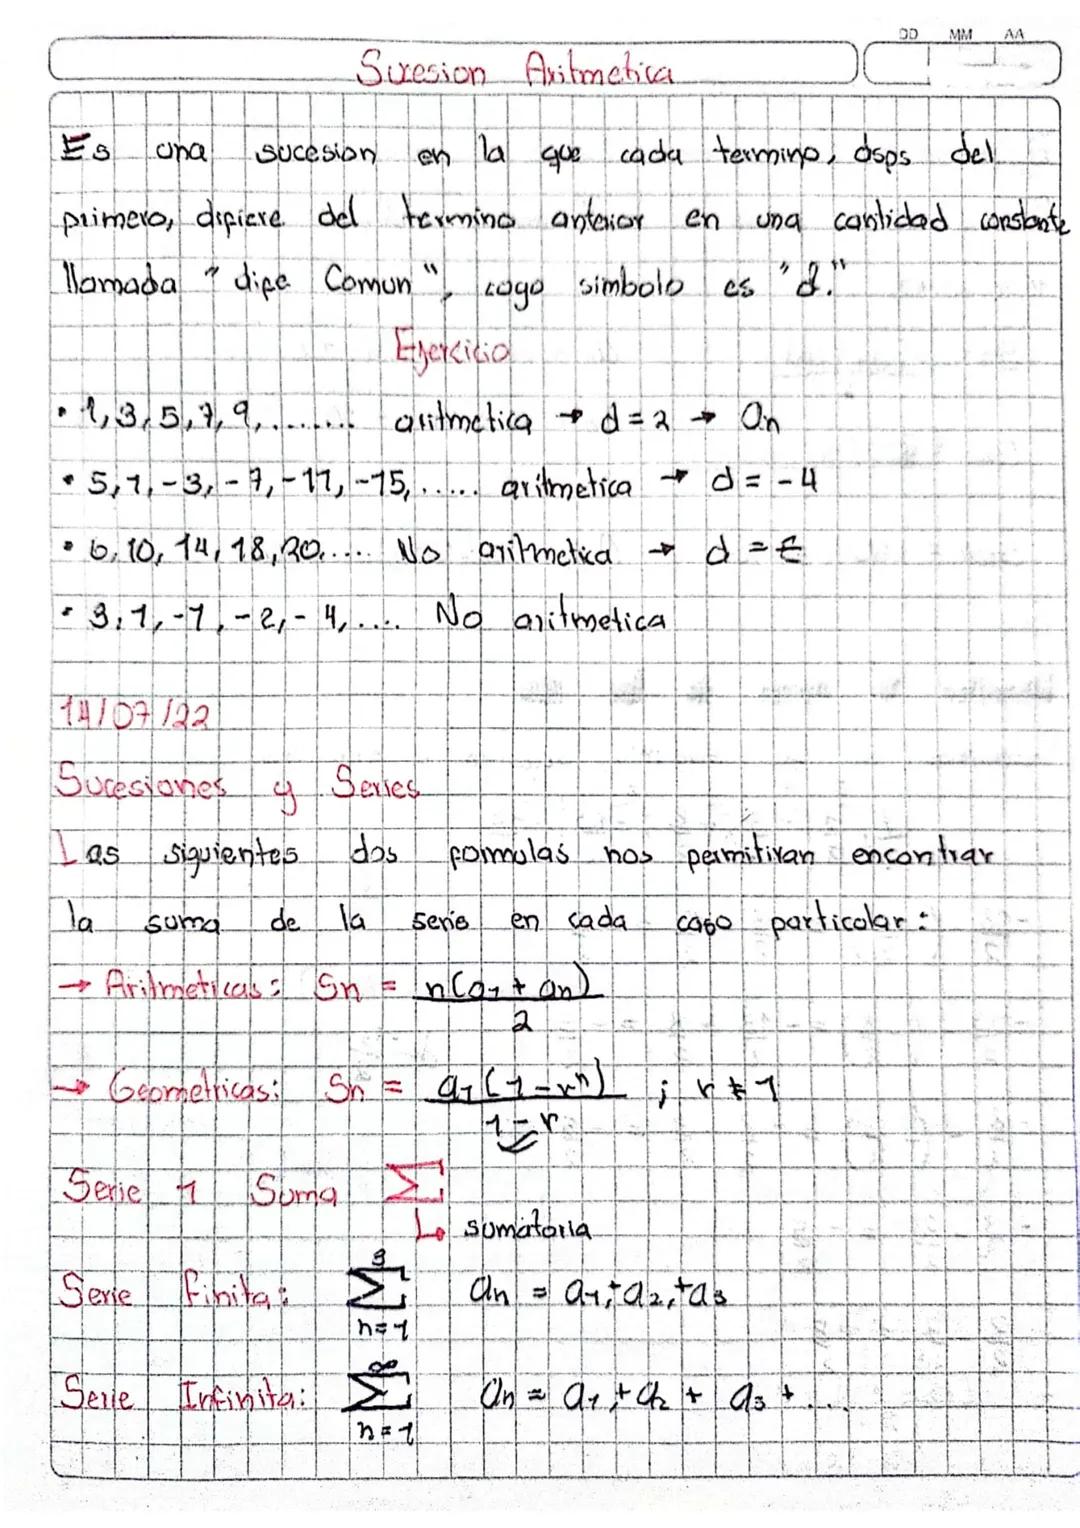 DD MM AA
Sucesion Aritmetica
Es una sucesion en la que cada termino, dsps del
primero, difiere del termino anterior en una cantidad constante
llamada "dife Comun", cogo simbolo es "d."
Ejercicio
• 1, 3, 5, 7, 9, ........ aritmetica → d = 2 → an
• 5, 1, -3, -7, -11, -15, ..... aritmetica → d = -4
• 6, 10, 14, 18, 20, .... No aritmetica → d =
• 3, 1, -1, -2, -4, .... No aritmetica
14/07/22
Sucesiones y Series
Las siguientes dos formulas nos permitiran encontrar
la suma de la serie en cada caso particolar:
→ Aritmeticas: Sn = n(a1 + an)
2
→ Geometricas: Sn = a1(1-rⁿ) ; r ≠ 1
1-r
Serie 1 Suma Σ
↳ sumatoria
3
Serie finita: Σ an = a1,+a2,+a3
n=1
∞
Serie Infinita: Σ an = a1,+a2 + a3 + ...
n=1